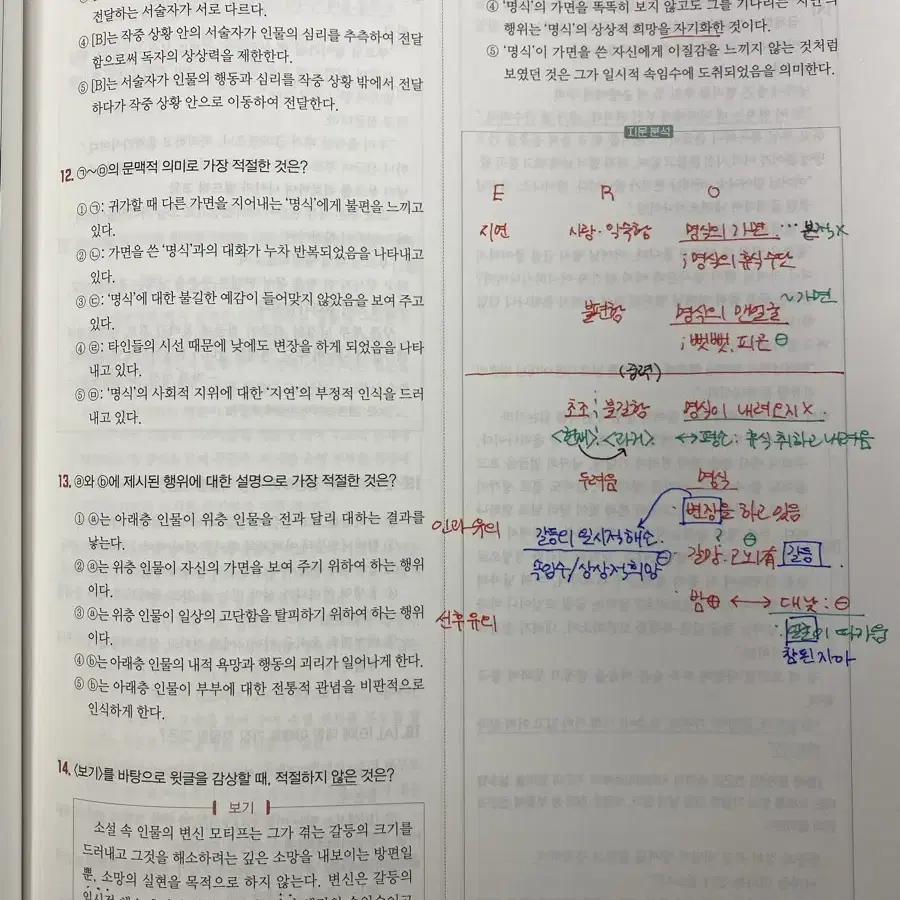 전달하는 서술자가 서로 다르다.
④ [B]는 작중 상황 안의 서술자가 인물의 심리를 추측하여 전달
함으로써 독자의 상상력을 제한한다.
⑤ [B]는 서술자가 인물의 행동과 심리를 작중 상황 밖에서 전달
하다가 작중 상황 안으로 이동하여 전달한다.
12. ㉠~㉤의 문맥적 의미로 가장 적절한 것은?
① ㉠: 귀가할 때 다른 가면을 지어내는 ‘명식’에게 불편을 느끼고
있다.
② ㉡: 가면을 쓴 ‘명식’과의 대화가 누차 반복되었음을 나타내고
있다.
③ ㉢: ‘명식’에 대한 불길한 예감이 들어맞지 않았음을 보여 주고
있다.
④ ㉣: 타인들의 시선 때문에 낮에도 변장을 하게 되었음을 나타
내고 있다.
⑤ ㉤: ‘명식’의 사회적 지위에 대한 ‘지연’의 부정적 인식을 드러
내고 있다.
13. ⓐ와 ⓑ에 제시된 행위에 대한 설명으로 가장 적절한 것은?
① ⓐ는 아래층 인물이 위층 인물을 전과 달리 대하는 결과를
낳는다.
② ⓐ는 위층 인물이 자신의 가면을 보여 주기 위하여 하는 행위
이다.
③ ⓐ는 위층 인물이 일상의 고단함을 탈피하기 위하여 하는 행위
이다.
④ ⓑ는 아래층 인물의 내적 욕망과 행동의 괴리가 일어나게 한다.
⑤ ⓑ는 아래층 인물이 부부에 대한 전통적 관념을 비판적으로
인식하게 한다.
14. <보기>를 바탕으로 윗글을 감상할 때, 적절하지 않은 것은?
보기
소설 속 인물의 변신 모티프는 그가 겪는 갈등의 크기를
드러내고 그것을 해소하려는 깊은 소망을 내보이는 방편일
뿐, 소망의 실현을 목적으로 하지 않는다. 변신은 갈등의
④ ‘명식’의 가면을 똑똑히 보지 않고도 그를 기다리는 ‘지연’의
행위는 ‘명식’의 상상적 희망을 자기화한 것이다.
⑤ ‘명식’이 가면을 쓴 자신에게 이질감을 느끼지 않는 것처럼
보였던 것은 그가 일시적 속임수에 도취되었음을 의미한다.
지문 분석
E R O
지연 사람·익숙함 명식의 가면 … 본격x
; 명식의 휴식 수단
불편함 명식의 맨얼굴 ~가면
; 뻣뻣, 피곤 ⊖
초조; 불길함 명식이 내려오지 x
<현재>, <과거> ↔ 평소: 휴식 취하고 내려옴
두려움 명식
인과 유의 변장을 하고 있음
갈등의 일시적 해소. ? ⊖
속임수/상상적 희망 ⊖ 갈망·고뇌 有 갈등.
선후유의 밤⊕ ↔ 대낮: ⊖
참된 자아